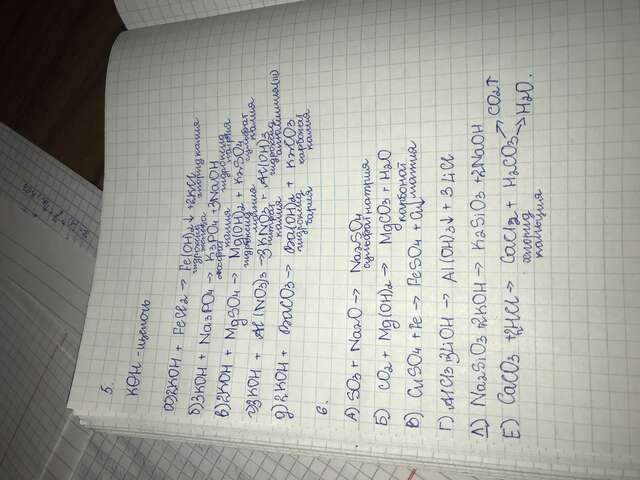 5.
KOH - щелочь
а) 2KOH + FeCl2 → Fe(OH)2↓ + 2KCl
гидроксид железа хлорид калия
б) 3KOH + Na3PO4 → K3PO4 + 3NaOH
фосфат калия гидроксид натрия
в) 2KOH + MgSO4 → Mg(OH)2 + K2SO4
гидроксид магния сульфат калия
г) 3KOH + Al(NO3)3 → 3KNO3 + Al(OH)3
нитрат калия гидроксид алюминия(III)
д) 2KOH + BaCO3 → Ba(OH)2 + K2CO3
гидроксид бария карбонат калия
6.
А) SO3 + Na2O → Na2SO4
сульфат натрия
Б) CO2 + Mg(OH)2 → MgCO3 + H2O
карбонат магния
В) CuSO4 + Fe → FeSO4 + Cu
Г) AlCl3 + 3LiOH → Al(OH)3↓ + 3LiCl
Д) Na2SiO3 + 2KOH → K2SiO3 + 2NaOH
Е) CaCO3 + 2HCl → CaCl2 + H2CO3 → CO2↑ → H2O.
хлорид кальция